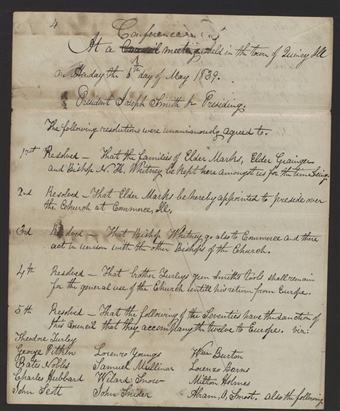 4
Conference
At a Council meeting held in the town of Quincy Ill
on Monday the 6th day of May 1839.
President Joseph Smith Jr Presiding
The following resolutions were unanimously agreed to.
1rst Resolved — That the families of Elder Marks, Elder Grainger
and Bishop N. K. Whitney be kept here amongst us for the time being.
2nd Resolved — That Elder Marks be hereby appointed to preside over
the Church at Commerce, Ill,
3rd Resolved — That Bishop Whitney go also to Commerce and there
act in unison with the other Bishops of the Church.
4th Resolved — That brother Turleys gun smiths tools shall remain
for the general use of the Church untill his return from Europe.
5th Resolved — That the following of the Seventies have the sanction of
this Council that they accompany the twelve to Europe. viz:
Theodore Turley
George Pitkin Lorenzo Youngs Wm Burton
Bates Nobles Samuel Mullinar Lorenzo Barns
Charles Hubbard Wilard Snow Milton Holmes
John Scott John Snider Abram O. Smoot, also the following